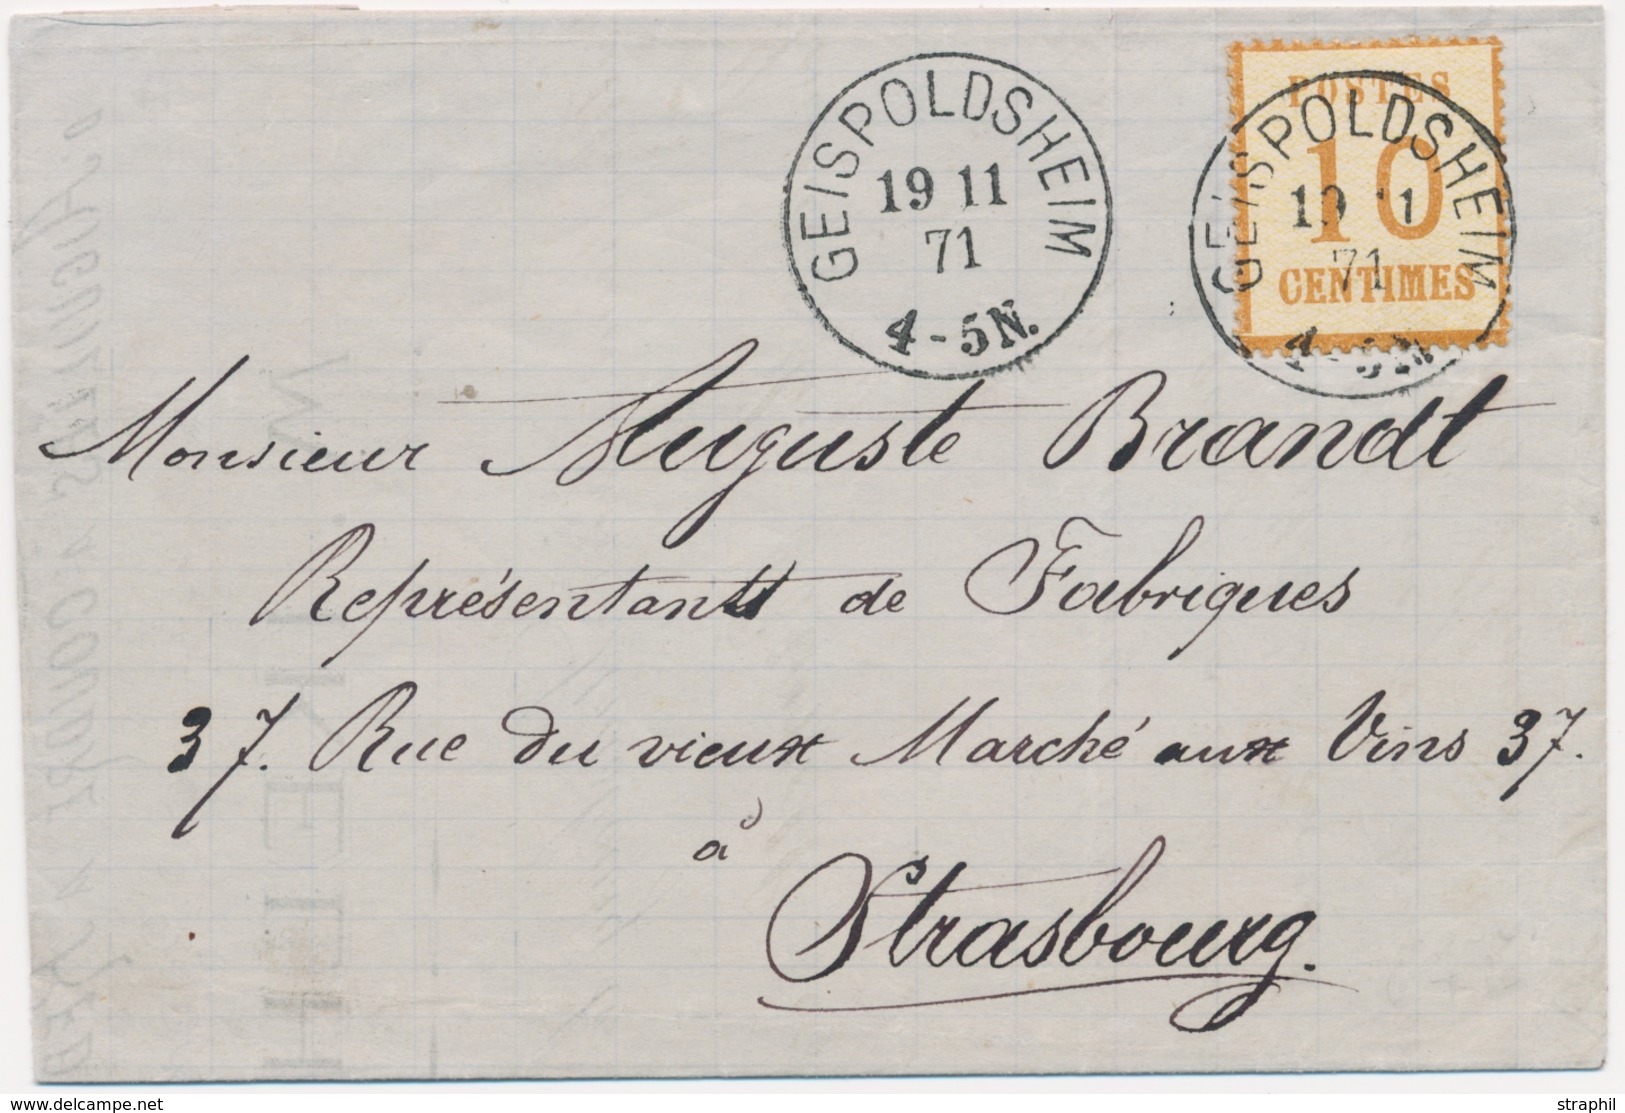 GEISPOLDSHEIM
19 11
71
4-5N.
POSTES
10
CENTIMES
GEISPOLDSHEIM
19 11
71
4-5N.
Monsieur Auguste Brandt
Représentant de Fabriques
37. Rue du vieux Marché aux Vins 37.
à
Strasbourg.
www.delcampe.net
straphil